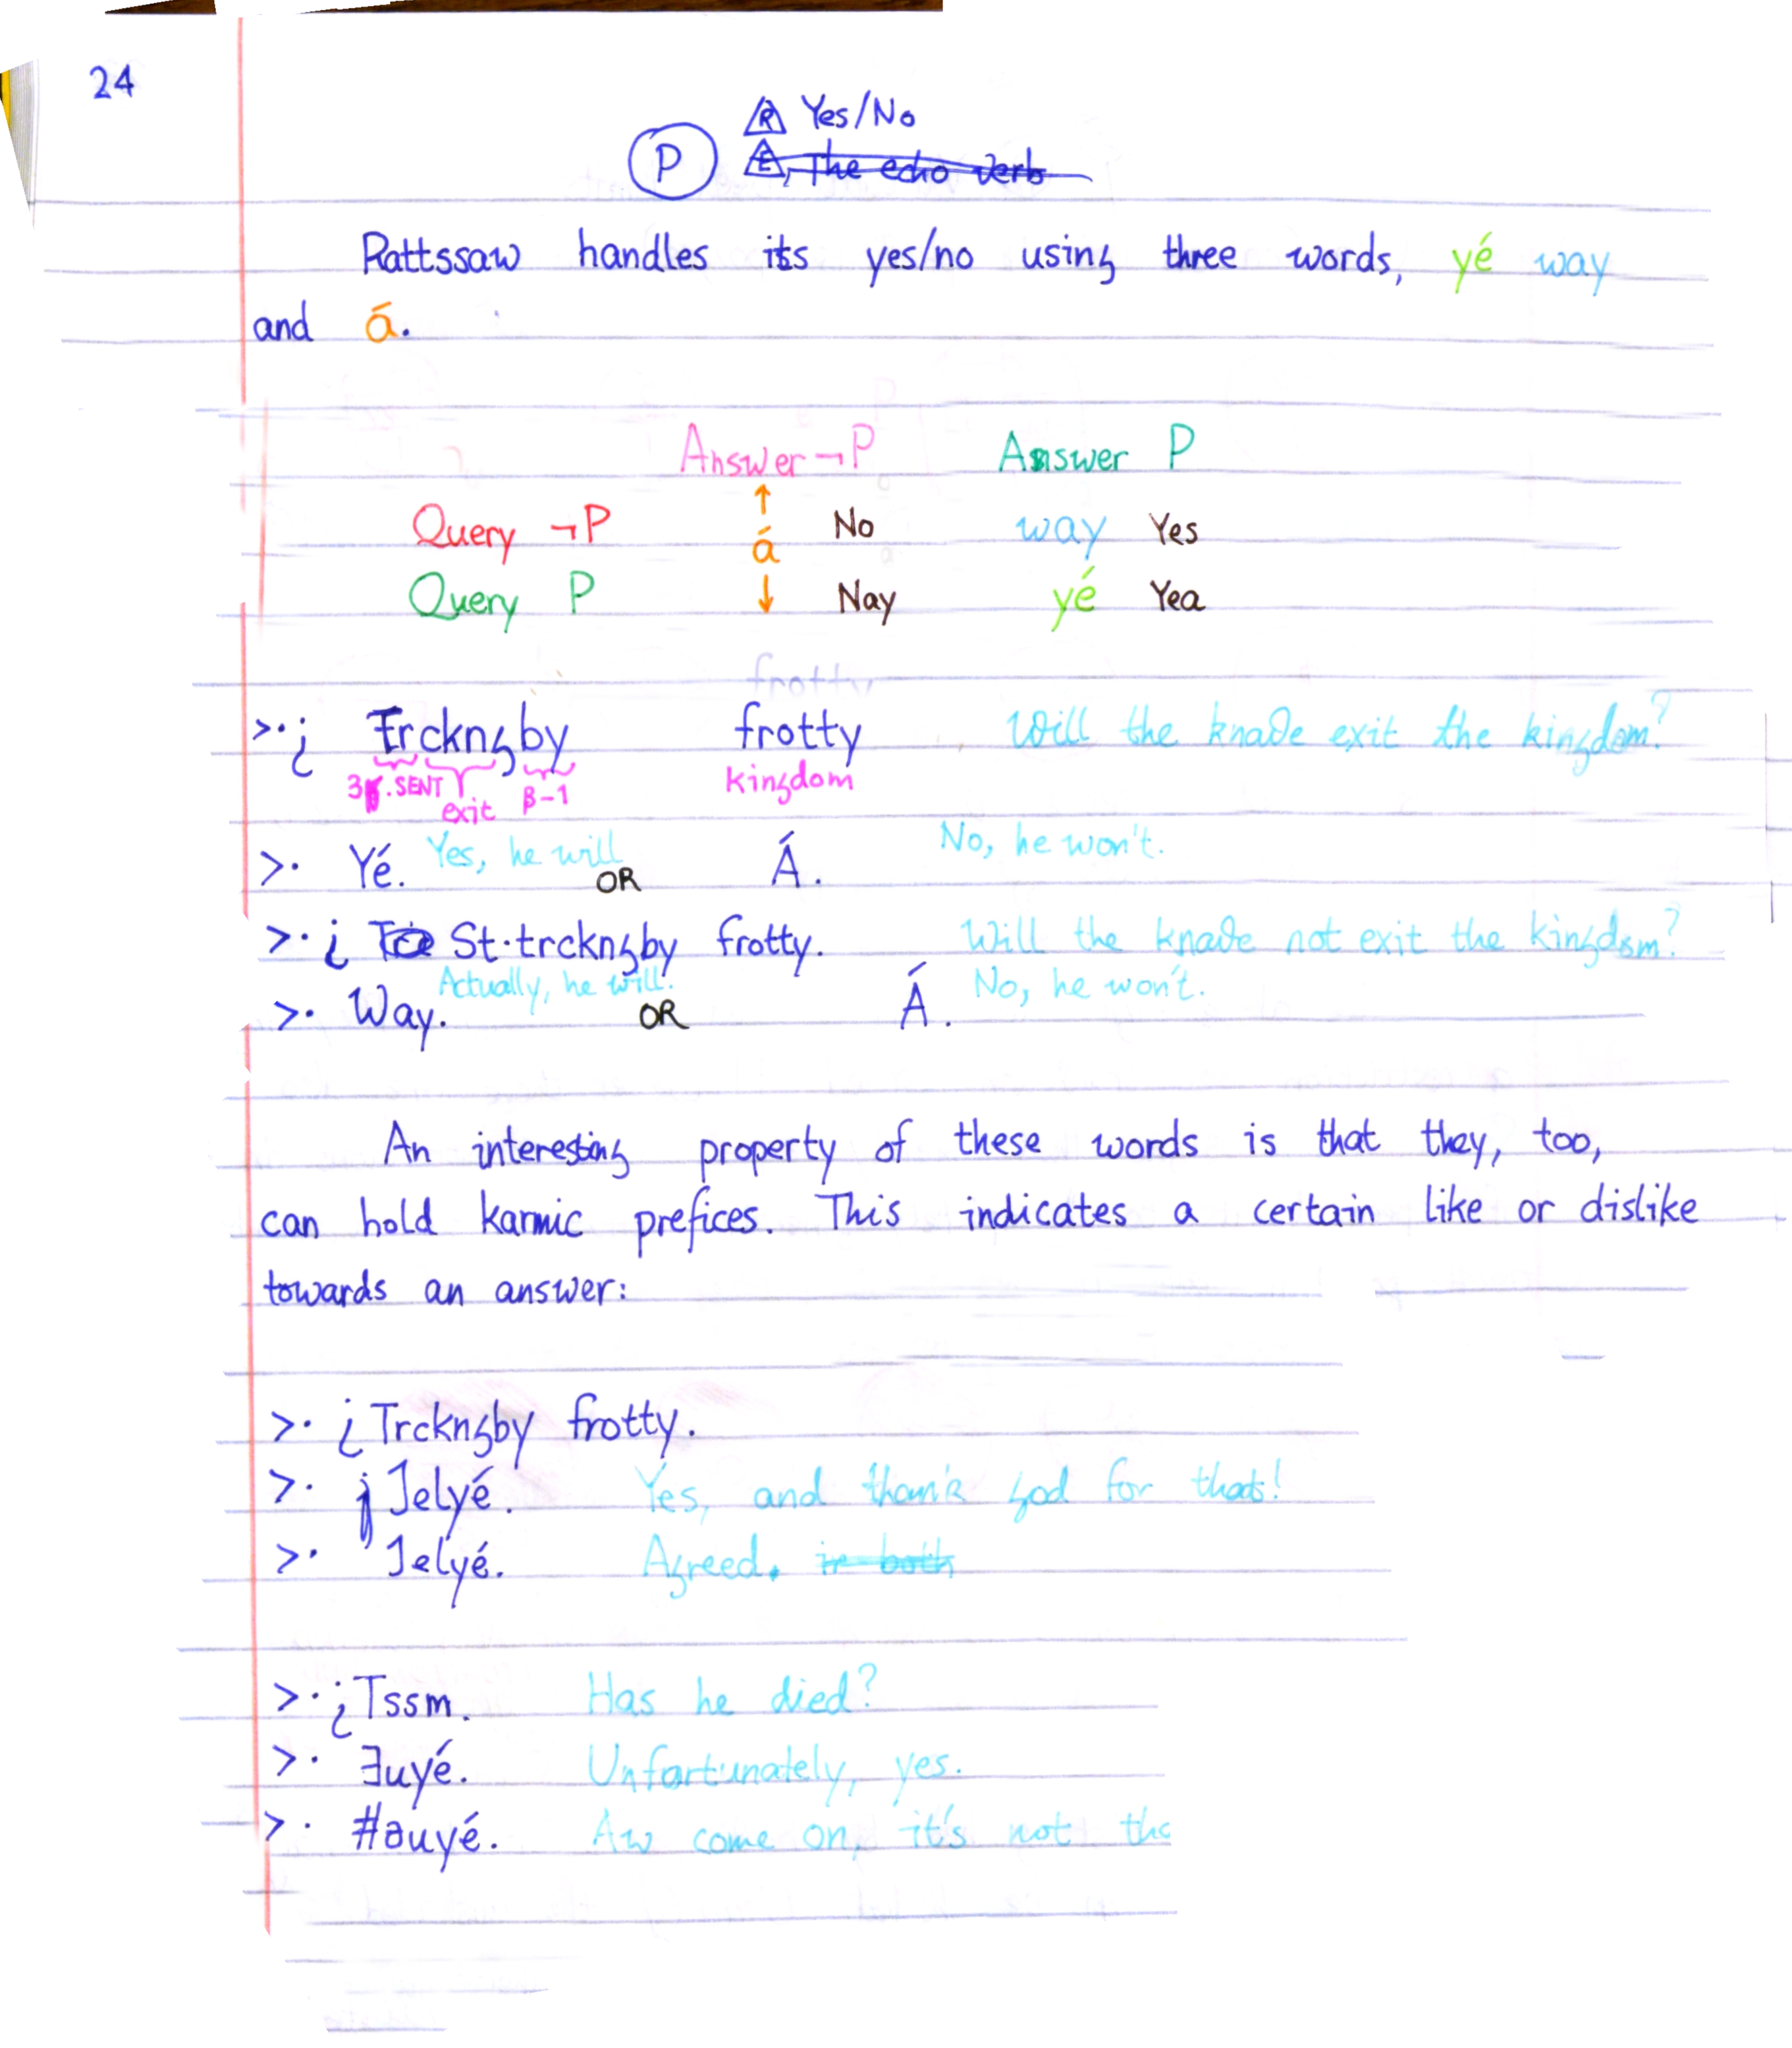 24
P
R Yes/No
E, The echo verb
Rattssaw handles its yes/no using three words, yé way
and á.
Answer ¬P Answer P
Query ¬P á No way Yes
Query P Nay yé Yea
>·¿ Trckngby frotty Will the knave exit the kingdom?
3.SENT exit β-1 kingdom
>· Yé. Yes, he will OR Á. No, he won't.
>·¿ St·trckngby frotty. Will the knave not exit the kingdom?
>· Way. Actually, he will. OR Á. No, he won't.
An interesting property of these words is that they, too,
can hold karmic prefices. This indicates a certain like or dislike
towards an answer:
>·¿ Trckngby frotty.
>· Jelyé. Yes, and thank god for that!
>· Jelyé. Agreed. in both
>·¿Tssm. Has he died?
>· Ǝuyé. Unfortunately, yes.
>· #əuyé. Aw come on, it's not tha